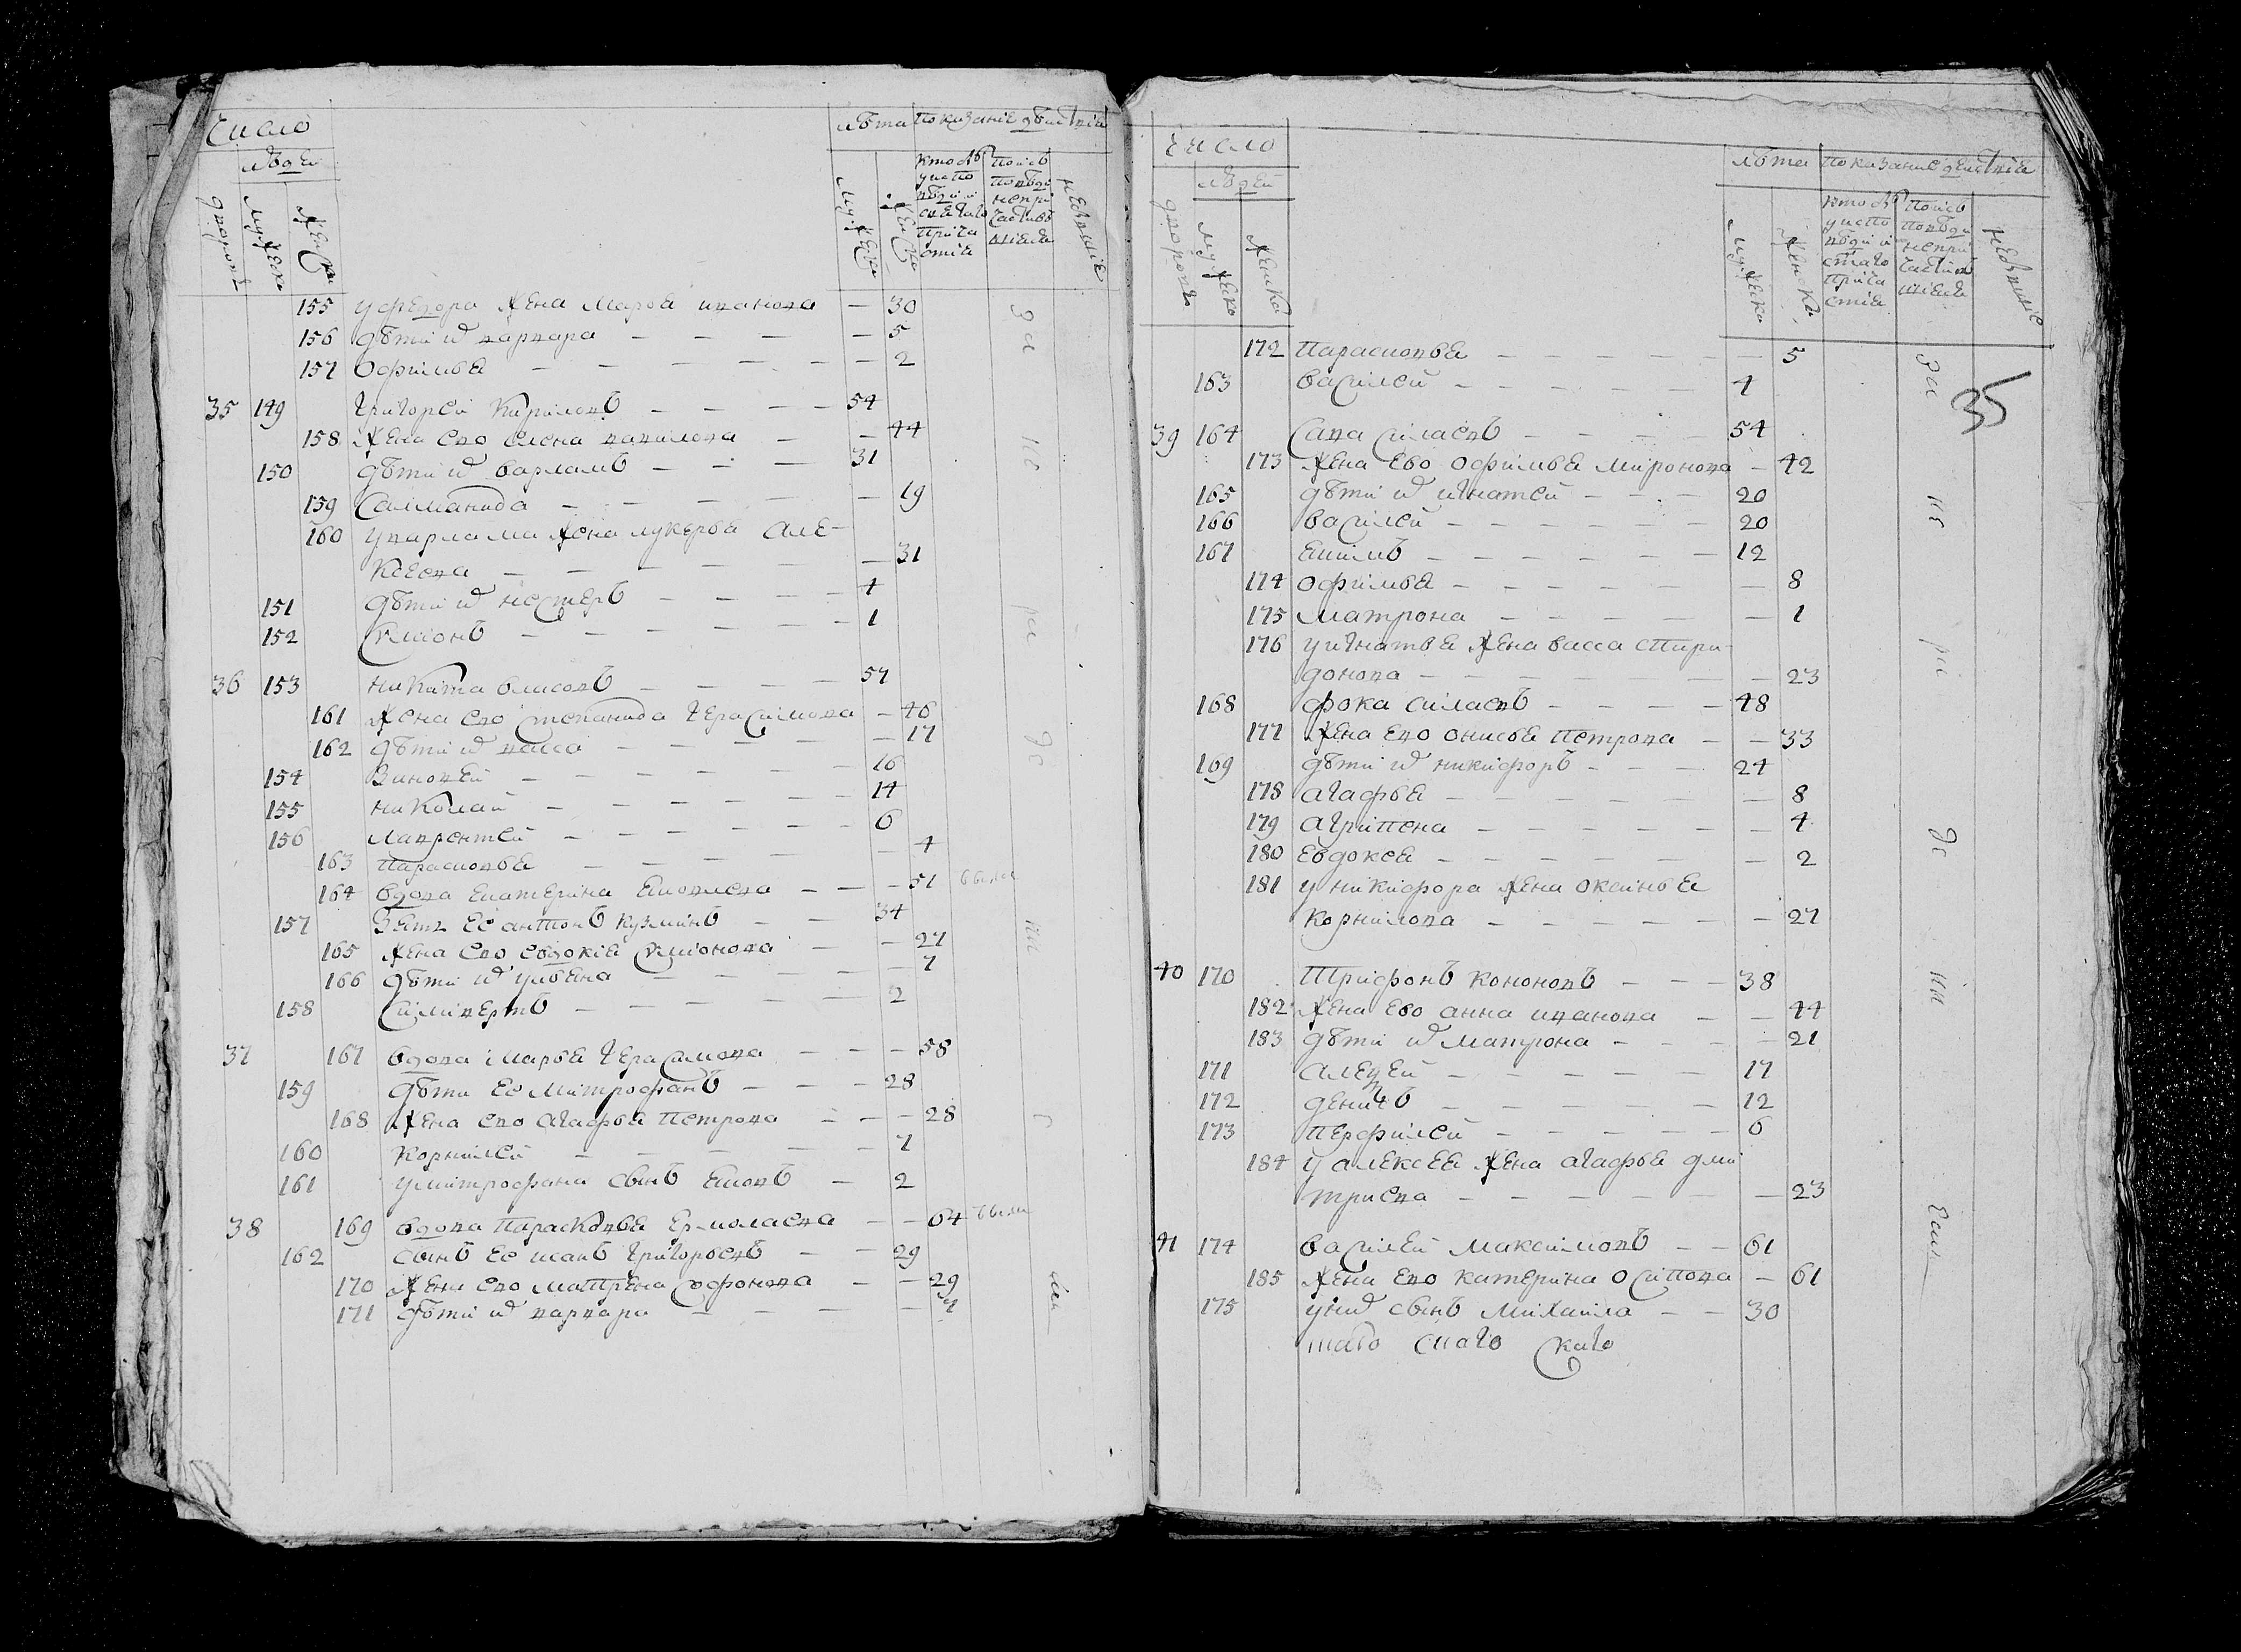 Число
людей
дворовъ
мужеска
женска
лѣта
показание дѣйствия
мужеска
женска
кто былъ
у испо
вѣди и
святаго
прича
стия
по исъ
повѣди
непри
частив
шияся
небывшие
155 у федора жена марѳа иванова — 30
156 дѣти их варвара — 5
157 офимья — 2
35 149 григорей кириловъ — 54
158 жена ево елена вавилова — 44
150 дѣти их варламъ — 31
159 саламанида — 19
160 у варлама жена лукерья але-
ксеева — 31
151 дѣти их нестеръ — 4
152 симионъ — 1
36 153 никита власовъ — 57
161 жена ево степанида герасимова — 46
162 дѣти их васса — 17
154 зиновей — 16
155 николай — 14
156 лаврентей — 6
163 парасковья — 4
164 вдова екатерина яковлева — 51
157 зять ее антонъ кузминъ — 34
165 жена ево евдокия симионова — 27
166 дѣти их ульяна — 7
158 силивертъ — 2
37 167 вдова марья герасимова — 58
159 дѣти ее митрофанъ — 28
168 жена ево агафья петрова — 28
160 корнилей — 7
161 у митрофана сынъ яковъ — 2
38 169 вдова парасковья ермолаева — 64
162 сынъ ее исакъ григорьевъ — 29
170 жена ево матрена софонова — 29
171 дѣти их варвара — 4
Число
людей
дворовъ
мужеско
женска
лѣта
показание действия
мужеска
женска
кто былъ
у испо
вѣди и
стаго
прича
стия
по исъ
повѣди
непри
частив
шияся
небывшие
35
172 парасковья — 5
163 василей — 4
39 164 сава силаевъ — 54
173 жена ево офимья миронова — 42
165 дѣти их игнатей — 20
166 василей — 20
167 якимъ — 12
174 офимья — 8
175 матрона — 1
176 у игнатья жена васса спири
донова — 23
168 фока силаевъ — 48
177 жена ево онисья петрова — 33
169 дѣти их никифоръ — 24
178 агафья — 8
179 агрипена — 4
180 евдокея — 2
181 у никифора жена оксинья
корнилова — 27
40 170 трифонъ кононовъ — 38
182 жена ево анна иванова — 44
183 дѣти их матрона — 21
171 алексей — 17
172 денисъ — 12
173 перфилей — 6
184 у алексея жена агафья дми
триева — 23
41 174 василей максимовъ — 61
185 жена ево катерина осипова — 61
175 у них сынъ михаила — 30